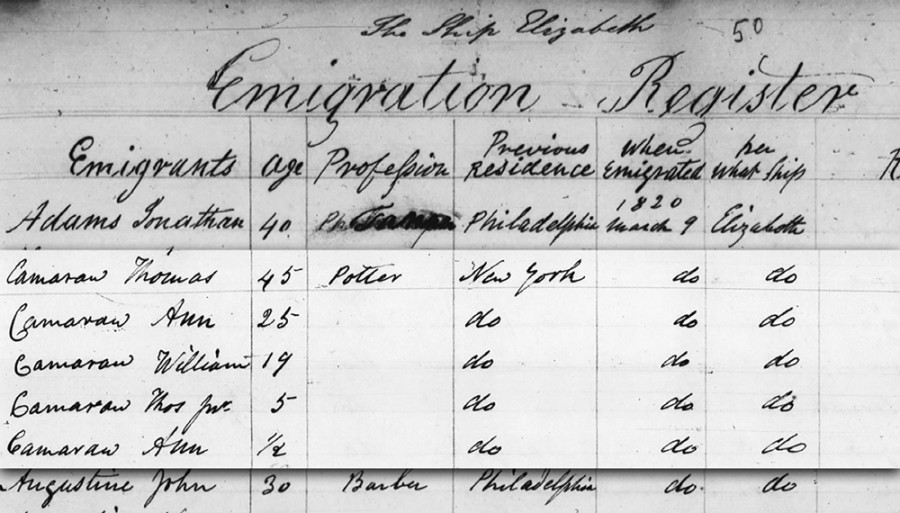 The Ship Elizabeth 50
Emigration Register
Emigrants age Profession Previous Residence When Emigrated per what Ship R
Adams Jonathan 40 Philadelphia 1820 March 9 Elizabeth
Camaraw Thomas 45 Potter New York do do
Camaraw Ann 25 do do do
Camaraw William 19 do do do
Camaraw Thos Jnr 5 do do do
Camaraw Ann 1/2 do do do
Augustine John 30 Barber Philadelphia do do